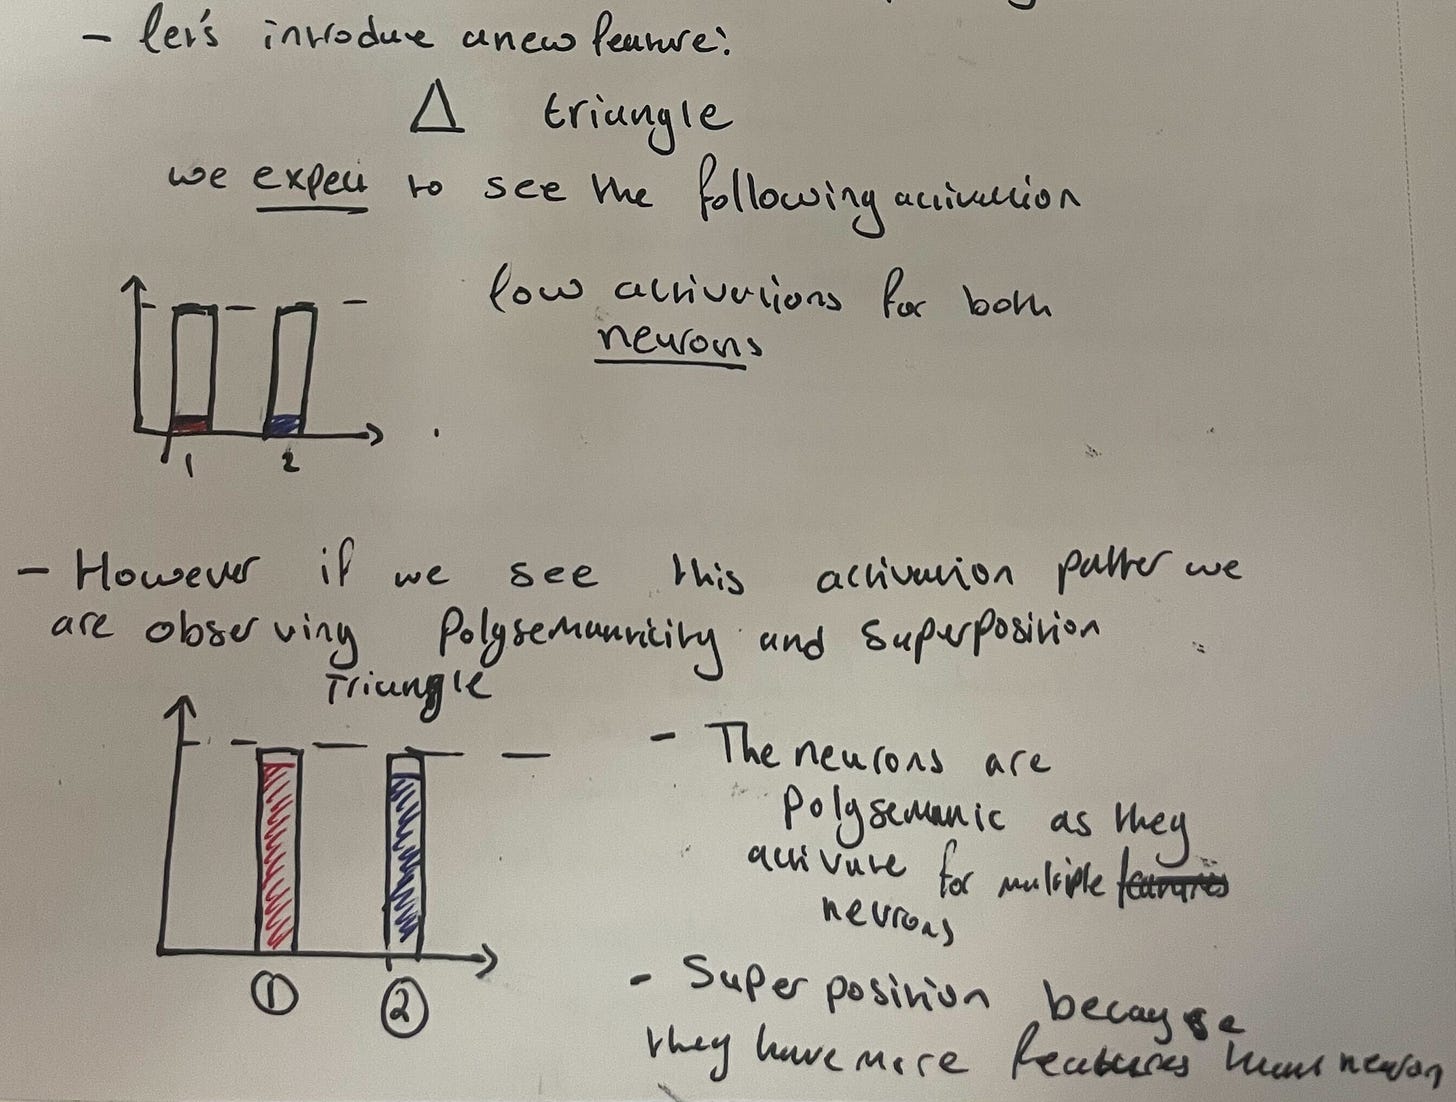 - let's introduce a new feature:
Δ triangle
we expect to see the following activation
low activations for both
neurons
1 2
- However if we see this activation patter we
are observing Polysemanticity and superposition
Triangle
- The neurons are
Polysemanic as they
activate for multiple features
neurons
① ②
- Superposition because
they have more features than neuron